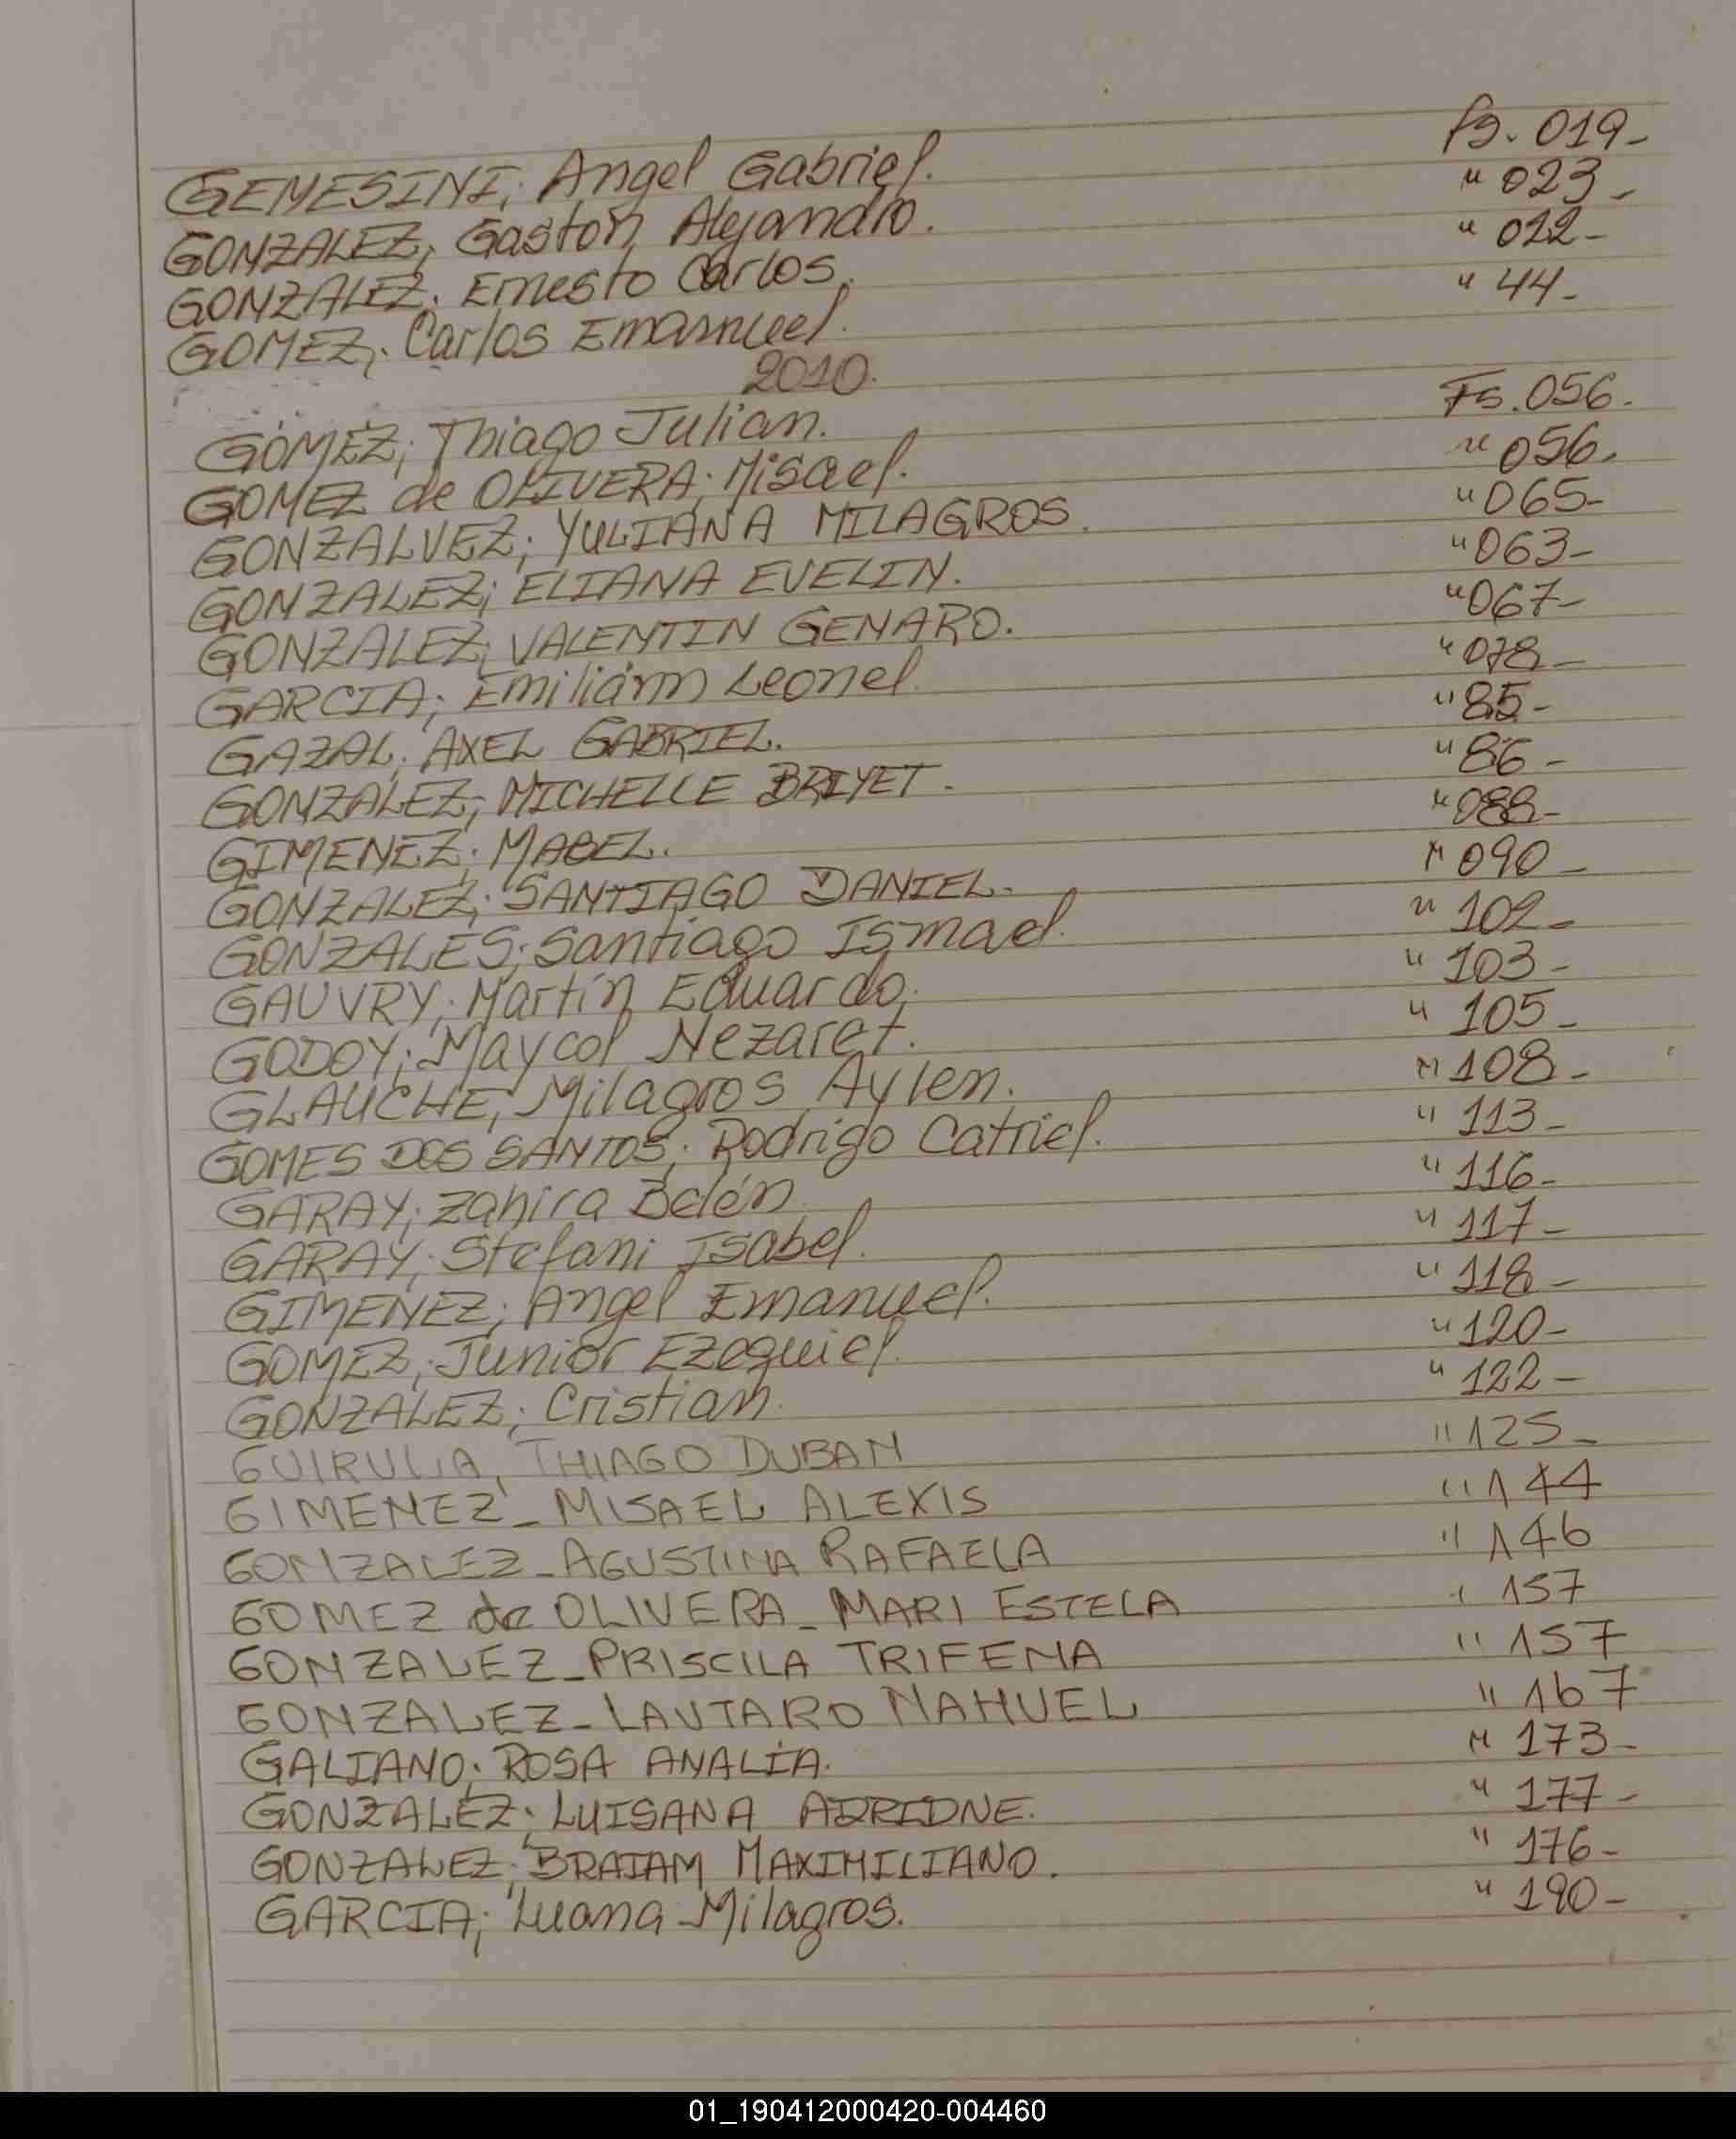 GEMESINI; Angel Gabriel. fs. 019-
GONZALEZ; Gastón Alejandro. " 023-
GONZALEZ; Ernesto Carlos. " 022-
GOMEZ; Carlos Emanuel. " 44-
2010.
GOMEZ; Thiago Julian. Fs. 056.
GOMEZ de OLIVERA; Misael. " 056.
GONZALVEZ; YULIANA MILAGROS. " 065-
GONZALEZ; ELIANA EVELIN. " 063-
GONZALEZ; VALENTIN GENARO. " 067-
GARCIA; Emiliánn Leonel. " 078-
GAZAL; AXEL GABRIEL. " 85-
GONZALEZ; MICHELLE BRIYET. " 86-
GIMENEZ; MABEL. " 088-
GONZALEZ; SANTIAGO DANIEL. " 090-
GONZALES; Santiago Ismael. " 102-
GAUVRY; Martín Eduardo. " 103-
GODOY; Maycol Nezaret. " 105-
GLAUCHE; Milagros Aylen. " 108-
GOMES DOS SANTOS; Rodrigo Catriel. " 113-
GARAY; Zahira Belén. " 116-
GARAY; Stefani Isabel. " 117-
GIMENEZ; Angel Emanuel. " 118-
GOMEZ; Junior Ezequiel. " 120-
GONZALEZ; Cristian. " 122-
GUIRULA, THIAGO DUBAN " 125-
GIMENEZ - MISAEL ALEXIS " 144
GONZALEZ - AGUSTINA RAFAELA " 146
GOMEZ de OLIVERA - MARI ESTELA " 157
GONZALEZ - PRISCILA TRIFENA " 157
GONZALEZ - LAUTARO NAHUEL " 167
GALIANO; ROSA ANALÍA. " 173-
GONZALEZ; LUISANA " 177-
GONZALEZ; BRAIAM MAXIMILIANO. " 176-
GARCIA; Luana Milagros. " 190-
01_190412000420-004460